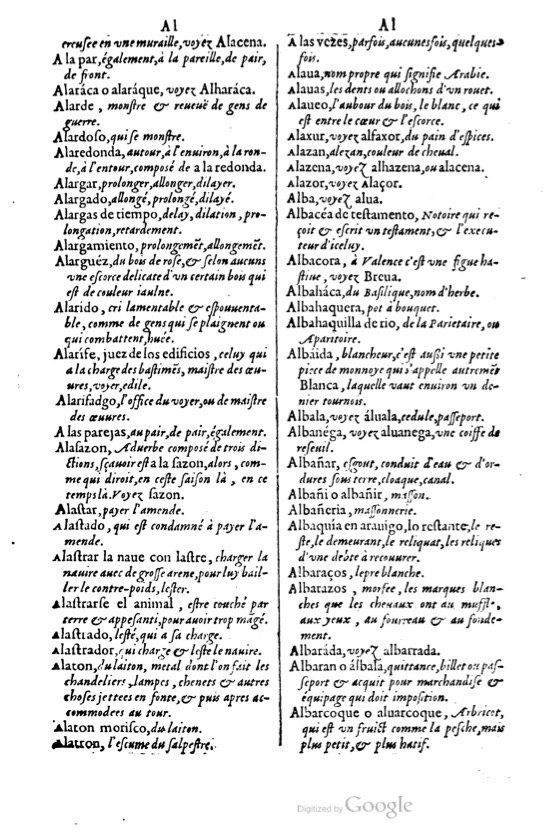 Al
ercusee en vne muraille, voyez Alacena.
A la par, également, à la pareille, de pair,
de front.
Alaráca o alaráque, voyez Alharáca.
Alarde, monstre & reueuë de gens de
guerre.
Alardoso, qui se monstre.
Alaredonda, autour, à l'enuiron, à la ron-
de, à l'entour, composé de a la redonda.
Alargar, prolonger, allonger, dilayer.
Alargado, allongé, prolongé, dilayé.
Alargas de tiempo, delay, dilation, pro-
longation, retardement.
Alargamiento, prolongemēt, allongemēt.
Alarguéz, du bois de rose, & selon aucuns
vne escorce delicate d'vn certain bois qui
est de couleur iaulne.
Alarido, cri lamentable & espouuenta-
ble, comme de gens qui se plaignent ou
qui combattent, huée.
Alarife, juez de los edificios, celuy qui
a la charge des bastimēs, maistre des œu-
ures, voyer, edile.
Alarifadgo, l'office du voyer, ou de maistre
des œuures.
A las parejas, au pair, de pair, également.
Alasazon, Aduerbe composé de trois di-
ctions, sçauoir est a la sazon, alors, com-
me qui diroit, en ceste saison là, en ce
temps là. Voyez sazon.
Alastar, payer l'amende.
Alastado, qui est condamné à payer l'a-
mende.
Alastrar la naue con lastre, charger la
nauire auec de grosse arene, pour luy bail-
ler le contre-poids, lester.
Alastrarse el animal, estre touché par
terre & appesanti, pour auoir trop māgé.
Alastrado, lesté, qui a sa charge.
Alastrador, qui charge & leste le nauire.
Alaton, du laiton, metal dont l'on fait les
chandeliers, lampes, chenets & autres
choses jettees en fonte, & puis apres ac-
commodees au tour.
Alaton morisco, du laiton.
Alatron, l'escume du salpestre.
Al
A las vezes, parfois, aucunesfois, quelques-
fois.
Alaua, nom propre qui signifie Arabie.
Alauas, les dents ou allochons d'vn rouet.
Alaueo, l'aubour du bois, le blanc, ce qui
est entre le cœur & l'escorce.
Alaxur, voyez alfaxor, du pain d'espices.
Alazan, alezan, couleur de cheual.
Alazena, voyez alhazena, ou alacena.
Alazor, voyez Alaçor.
Alba, voyez alua.
Albacéa de testamento, Notoire qui re-
çoit & escrit vn testament, & l'execu-
teur d'iceluy.
Albacora, à Valence c'est vne figue ha-
stiue, voyez Breua.
Albaháca, du Basilique, nom d'herbe.
Albahaquera, pot à bouquet.
Albahaquilla de rio, de la Parietaire, ou
Aparitoire.
Albáida, blancheur, c'est aussi vne petite
piece de monnoye qui s'appelle autremēt
Blanca, laquelle vaut enuiron vn de-
nier tournois.
Albala, voyez áluala, cedule, passeport.
Albanéga, voyez aluanega, vne coiffe de
reseuil.
Albañar, esgout, conduit d'eau & d'or-
dures sous terre, cloaque, canal.
Albañi o albañir, masson.
Albañeria, massonnerie.
Albaquía en arauigo, lo restante, le re-
ste, le demeurant, le reliquat, les reliques
d'vne debte à recouurer.
Albaraços, lepre blanche.
Albarazos, morfee, les marques blan-
ches que les cheuaux ont au muffle,
aux yeux, au fourreau & au fonde-
ment.
Albaráda, voyez albarrada.
Albaran o álbala, quittance, billet ou pas-
seport & acquit pour marchandise &
équipage qui doit imposition.
Albarcoque o aluarcoque, Arbricot,
qui est vn fruict comme la pesche, mais
plus petit, & plus hatif.
Digitized by Google